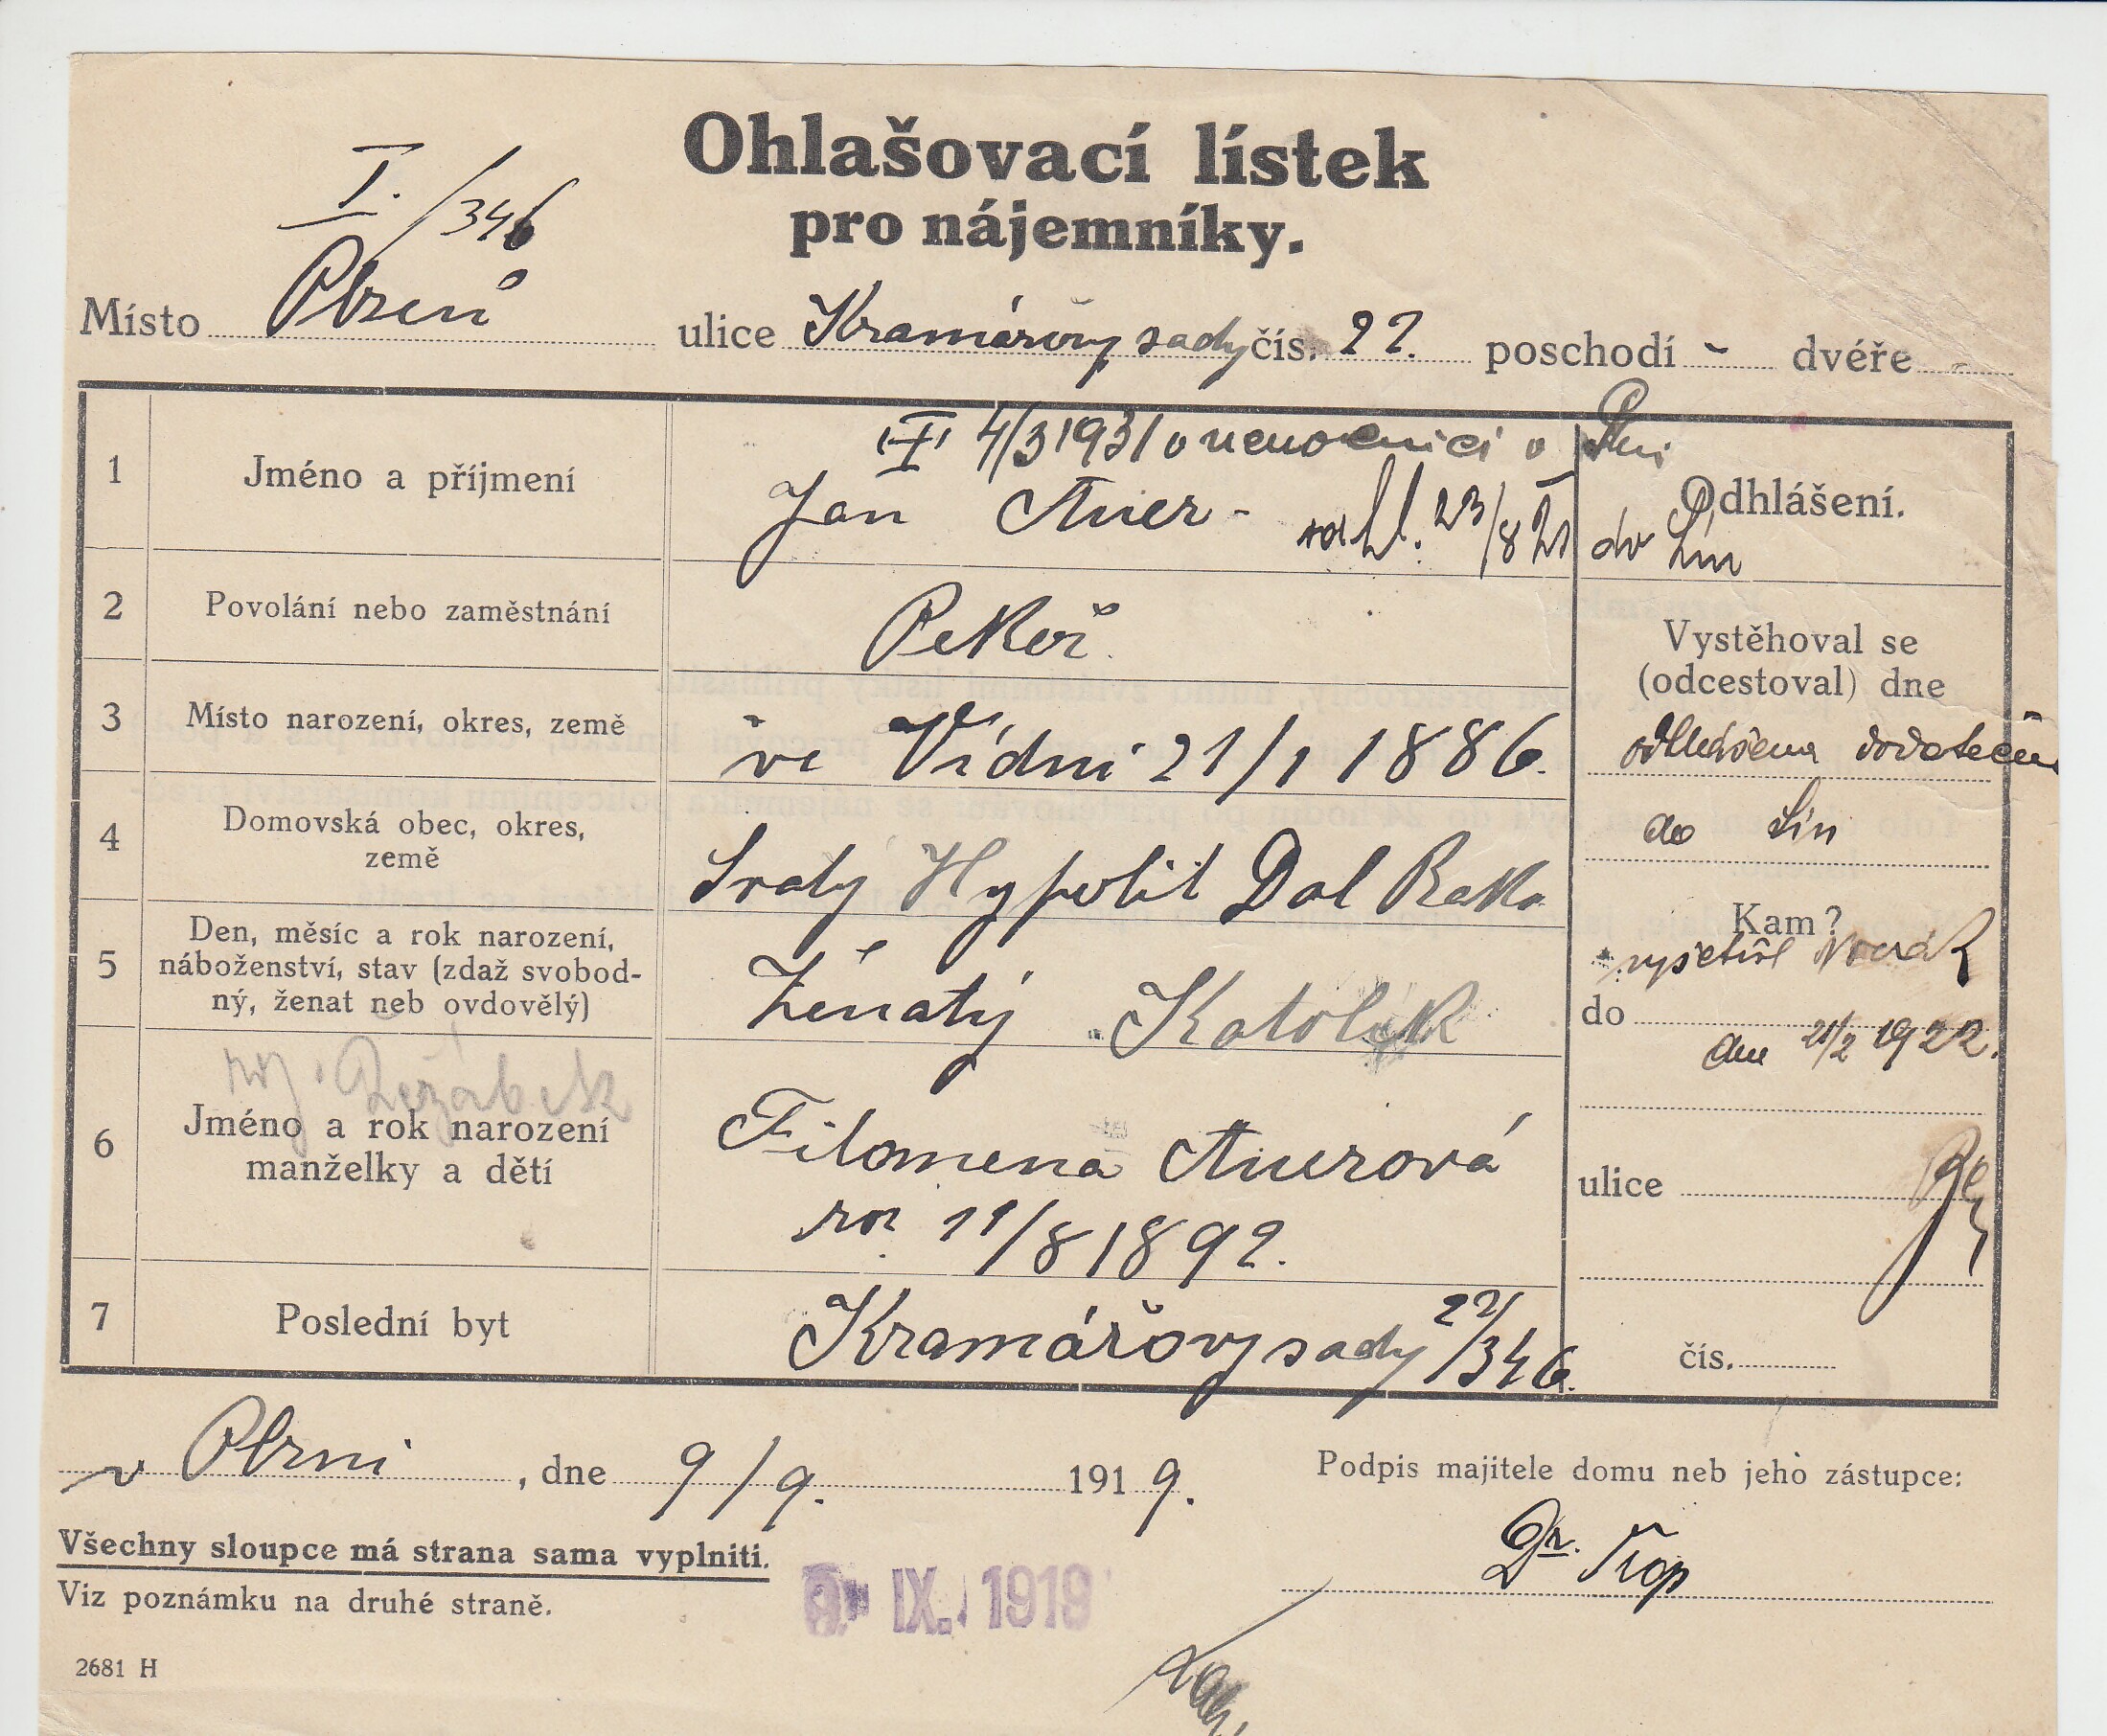 Ohlašovací lístek
pro nájemníky.
I. /346
Místo Plzeň ulice Kramářovy sady čís. 22. poschodí - dvéře -
1 Jméno a příjmení
4/3 1931 v nemocnici v Plni
Jan Auer - odhl. 23/8 21 do Lín
Odhlášení.
2 Povolání nebo zaměstnání
Pekař.
Vystěhoval se
(odcestoval) dne
3 Místo narození, okres, země
ve Vídni 21/1 1886.
odhlášena dodatečně
do Lín
4 Domovská obec, okres,
země
Svatý Hypolit Dol Rak.
Kam?
vyšetřil Novák
5 Den, měsíc a rok narození,
náboženství, stav (zdaž svobod-
ný, ženat neb ovdovělý)
Ženatý Katolík
do
dne 21/2 1922.
roz. Řežábek
6 Jméno a rok narození
manželky a dětí
Filomena Auerová
nar. 11/8 1892.
ulice
7 Poslední byt
Kramářovy sady 22/346.
čís.
v Plzni, dne 9/9. 1919.
Podpis majitele domu neb jeho zástupce:
Dr.
Všechny sloupce má strana sama vyplniti.
Viz poznámku na druhé straně.
9. IX. 1919
2681 H